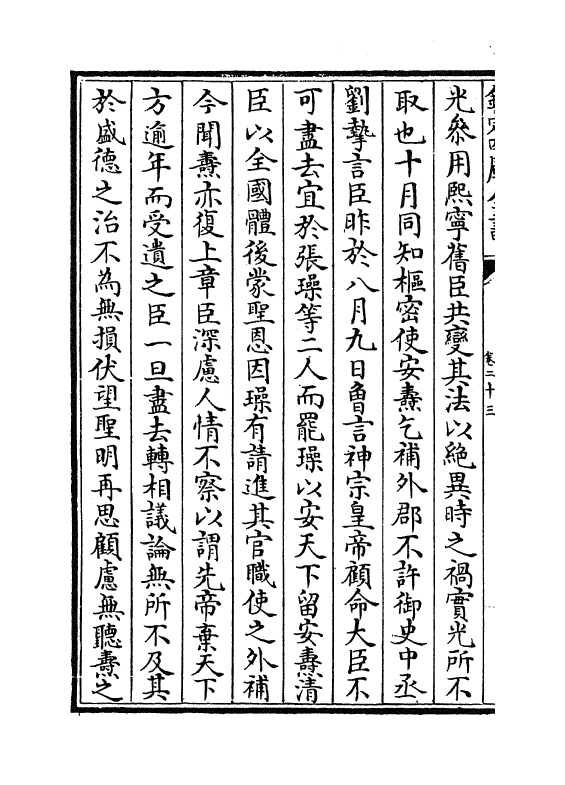 欽定四庫全書
卷二十三
光叅用熙寧舊臣共變其法以絶異時之禍實光所不
取也十月同知樞密使安燾乞補外郡不許御史中丞
劉摯言臣昨於八月九日曾言神宗皇帝顧命大臣不
可盡去宜於張璪等二人而罷璪以安天下留安燾清
臣以全國體後蒙聖恩因璪有請進其官職使之外補
今聞燾亦復上章臣深慮人情不察以謂先帝棄天下
方逾年而受遺之臣一旦盡去轉相議論無所不及其
於盛德之治不為無損伏望聖明再思顧慮無聽燾之